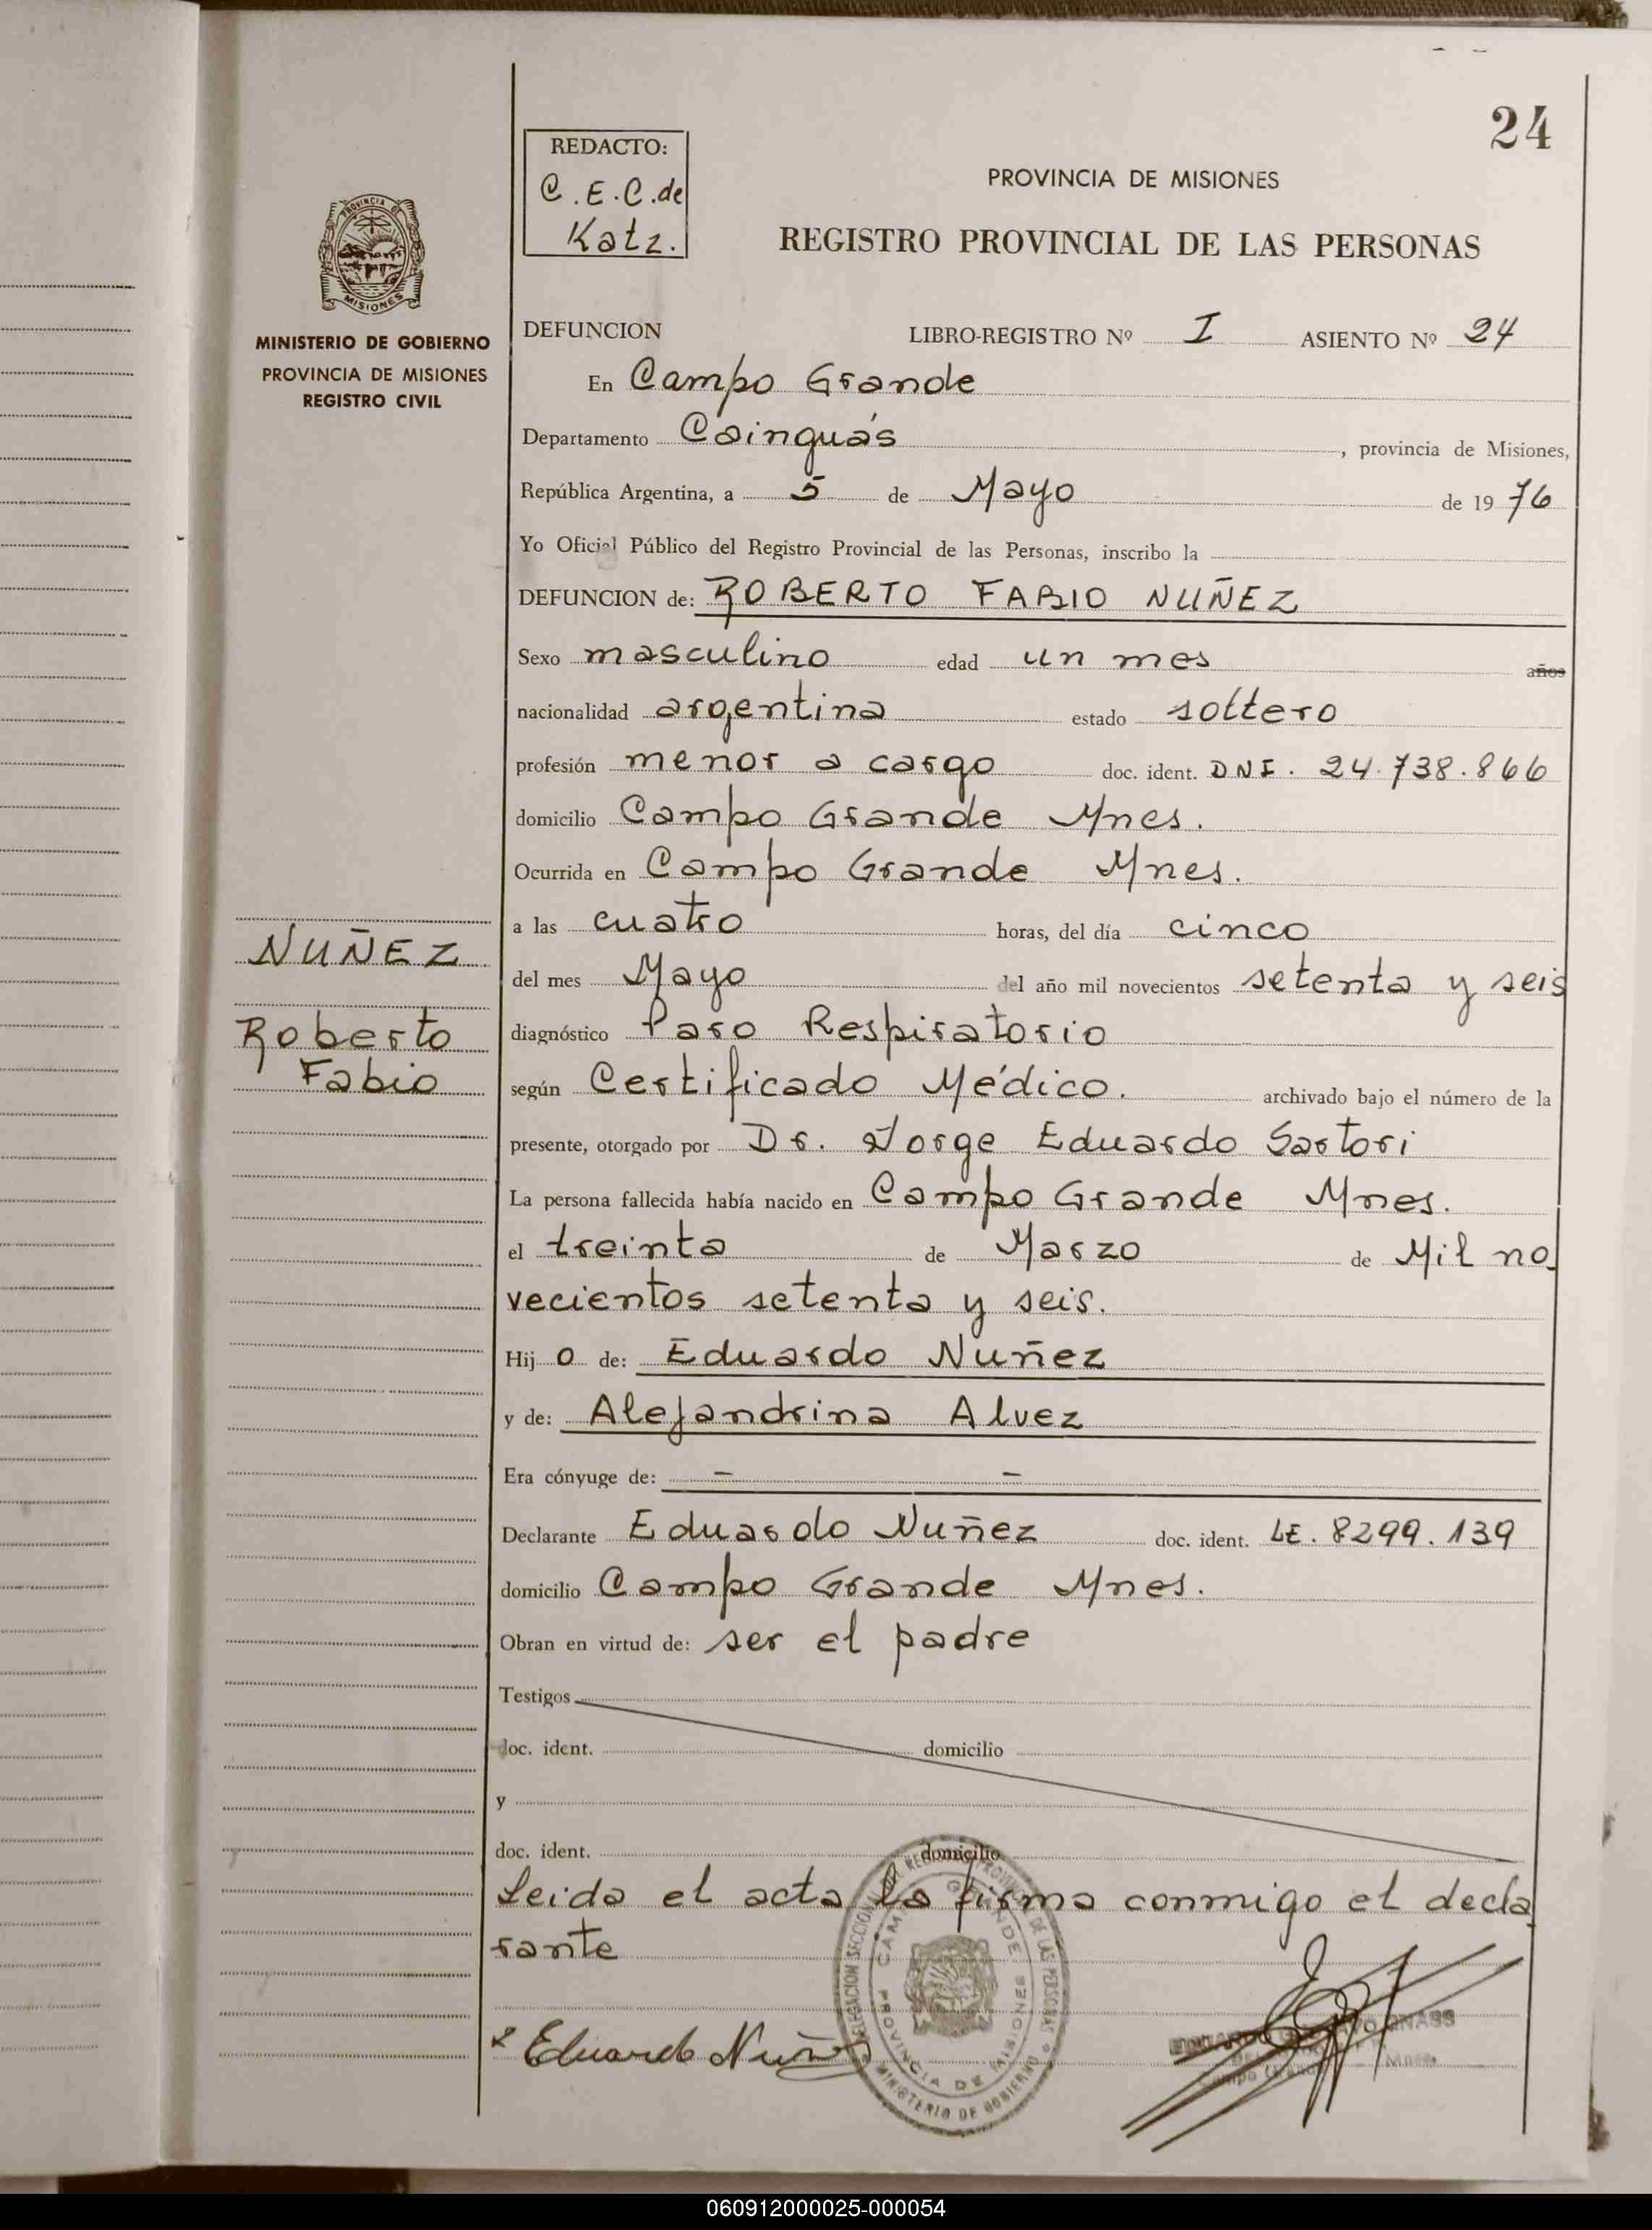 24
REDACTO:
C.E.C. de
Katz.
PROVINCIA DE MISIONES
REGISTRO PROVINCIAL DE LAS PERSONAS
PROVINCIA DE
MISIONES
MINISTERIO DE GOBIERNO
PROVINCIA DE MISIONES
REGISTRO CIVIL
DEFUNCION LIBRO-REGISTRO Nº I ASIENTO Nº 24
En Campo Grande
Departamento Cainguás, provincia de Misiones,
República Argentina, a 5 de Mayo de 1976
Yo Oficial Público del Registro Provincial de las Personas, inscribo la
DEFUNCION de: ROBERTO FABIO NUÑEZ
Sexo masculino edad un mes años
nacionalidad argentina estado soltero
profesión menor a cargo doc. ident. DNI. 24.738.866
domicilio Campo Grande Mnes.
Ocurrida en Campo Grande Mnes.
a las cuatro horas, del día cinco
del mes Mayo del año mil novecientos setenta y seis
diagnóstico Paro Respiratorio
según Certificado Médico. archivado bajo el número de la
presente, otorgado por Dr. Jorge Eduardo Sartori
La persona fallecida había nacido en Campo Grande Mnes.
el treinta de Marzo de Mil no
vecientos setenta y seis.
Hijo de: Eduardo Nuñez
y de: Alejandrina Alvez
Era cónyuge de: – –
Declarante Eduardo Nuñez doc. ident. LE. 8299.139
domicilio Campo Grande Mnes.
Obran en virtud de: ser el padre
Testigos
doc. ident. domicilio
y
doc. ident. domicilio
Leida el acta la firma conmigo el decla
rante
NUÑEZ
Roberto
Fabio
Eduardo Nuñez
DELEGACION SECCIONAL DEL REGISTRO PROVINCIAL DE LAS PERSONAS
MINISTERIO DE GOBIERNO
CAMPO GRANDE
PROVINCIA DE MISIONES
Campo Grande Mnes.
060912000025-000054